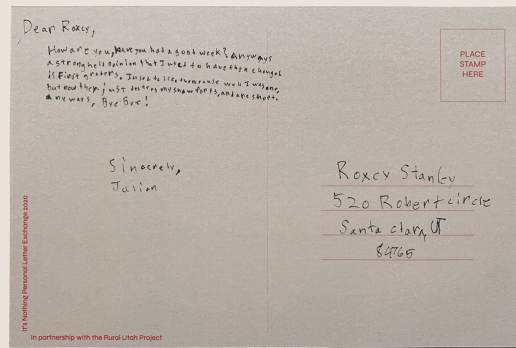 Dear Roxcy,
How are you, have you had a good week? Anyways
a strong held opinion that I used to have then changed
is First graders. I used to like them cause well I was one,
but now they just destroy my snow forts, and are short.
Any ways, Bye Bye!
Sincrely,
Julian
PLACE
STAMP
HERE
Roxcy Stanley
520 Robert circle
Santa clara, UT
84765
It's Nothing Personal Letter Exchange 2020
In partnership with the Rural Utah Project